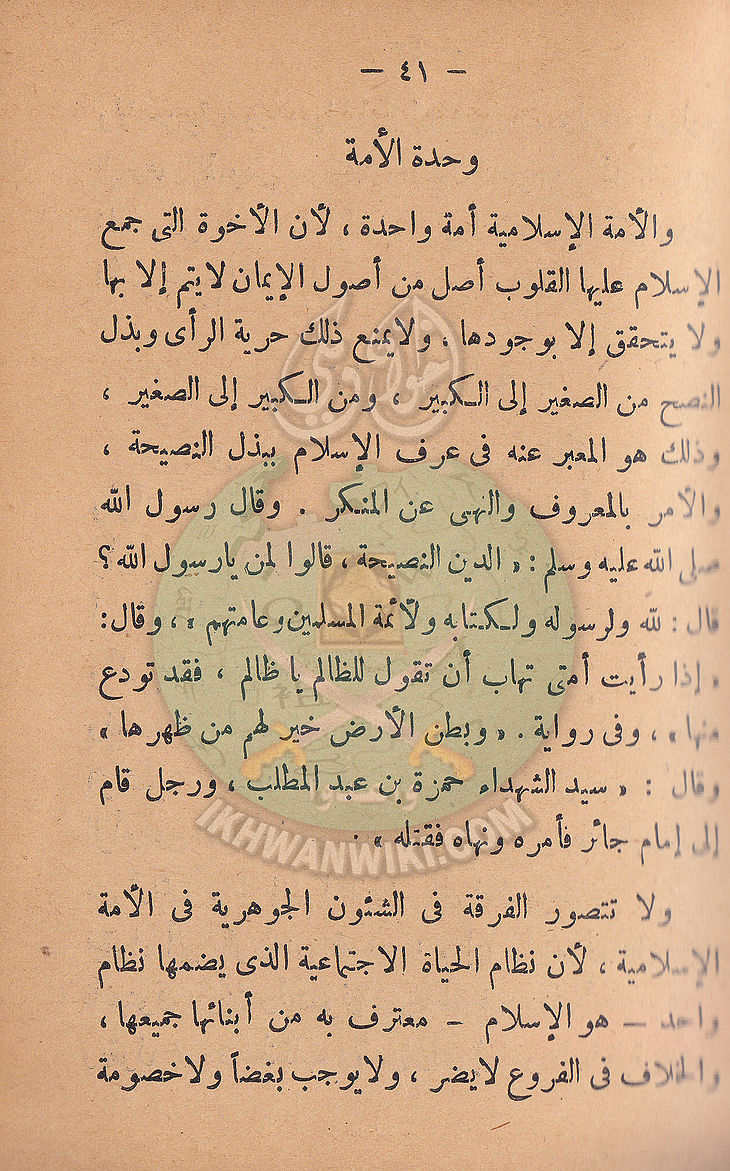 — ٤١ —
وحدة الأمة
والأمة الإسلامية أمة واحدة ، لأن الأخوة التى جمع
الإسلام عليها القلوب أصل من أصول الإيمان لايتم إلا بها
ولا يتحقق إلا بوجودها ، ولايمنع ذلك حرية الرأى وبذل
النصح من الصغير إلى الكبير ، ومن الكبير إلى الصغير ،
وذلك هو المعبر عنه فى عرف الإسلام ببذل النصيحة ،
والأمر بالمعروف والنهى عن المنكر . وقال رسول الله
صلى الله عليه وسلم : « الدين النصيحة ، قالوا لمن يارسول الله ؟
قال : لله ولرسوله ولكتابه ولأئمة المسلمين وعامتهم » ، وقال :
« إذا رأيت أمتى تهاب أن تقول للظالم يا ظالم ، فقد تودع
منها » ، وفى رواية . « وبطن الأرض خير لهم من ظهرها »
وقال : « سيد الشهداء حمزة بن عبد المطلب ، ورجل قام
إلى إمام جائر فأمره ونهاه فقتله » .
ولا تتصور الفرقة فى الشئون الجوهرية فى الأمة
الإسلامية ، لأن نظام الحياة الاجتماعية الذى يضمها نظام
واحد — هو الإسلام — معترف به من أبنائها جميعها ،
والخلاف فى الفروع لايضر ، ولايوجب بغضاً ولاخصومة
IKHWANWIKI.COM